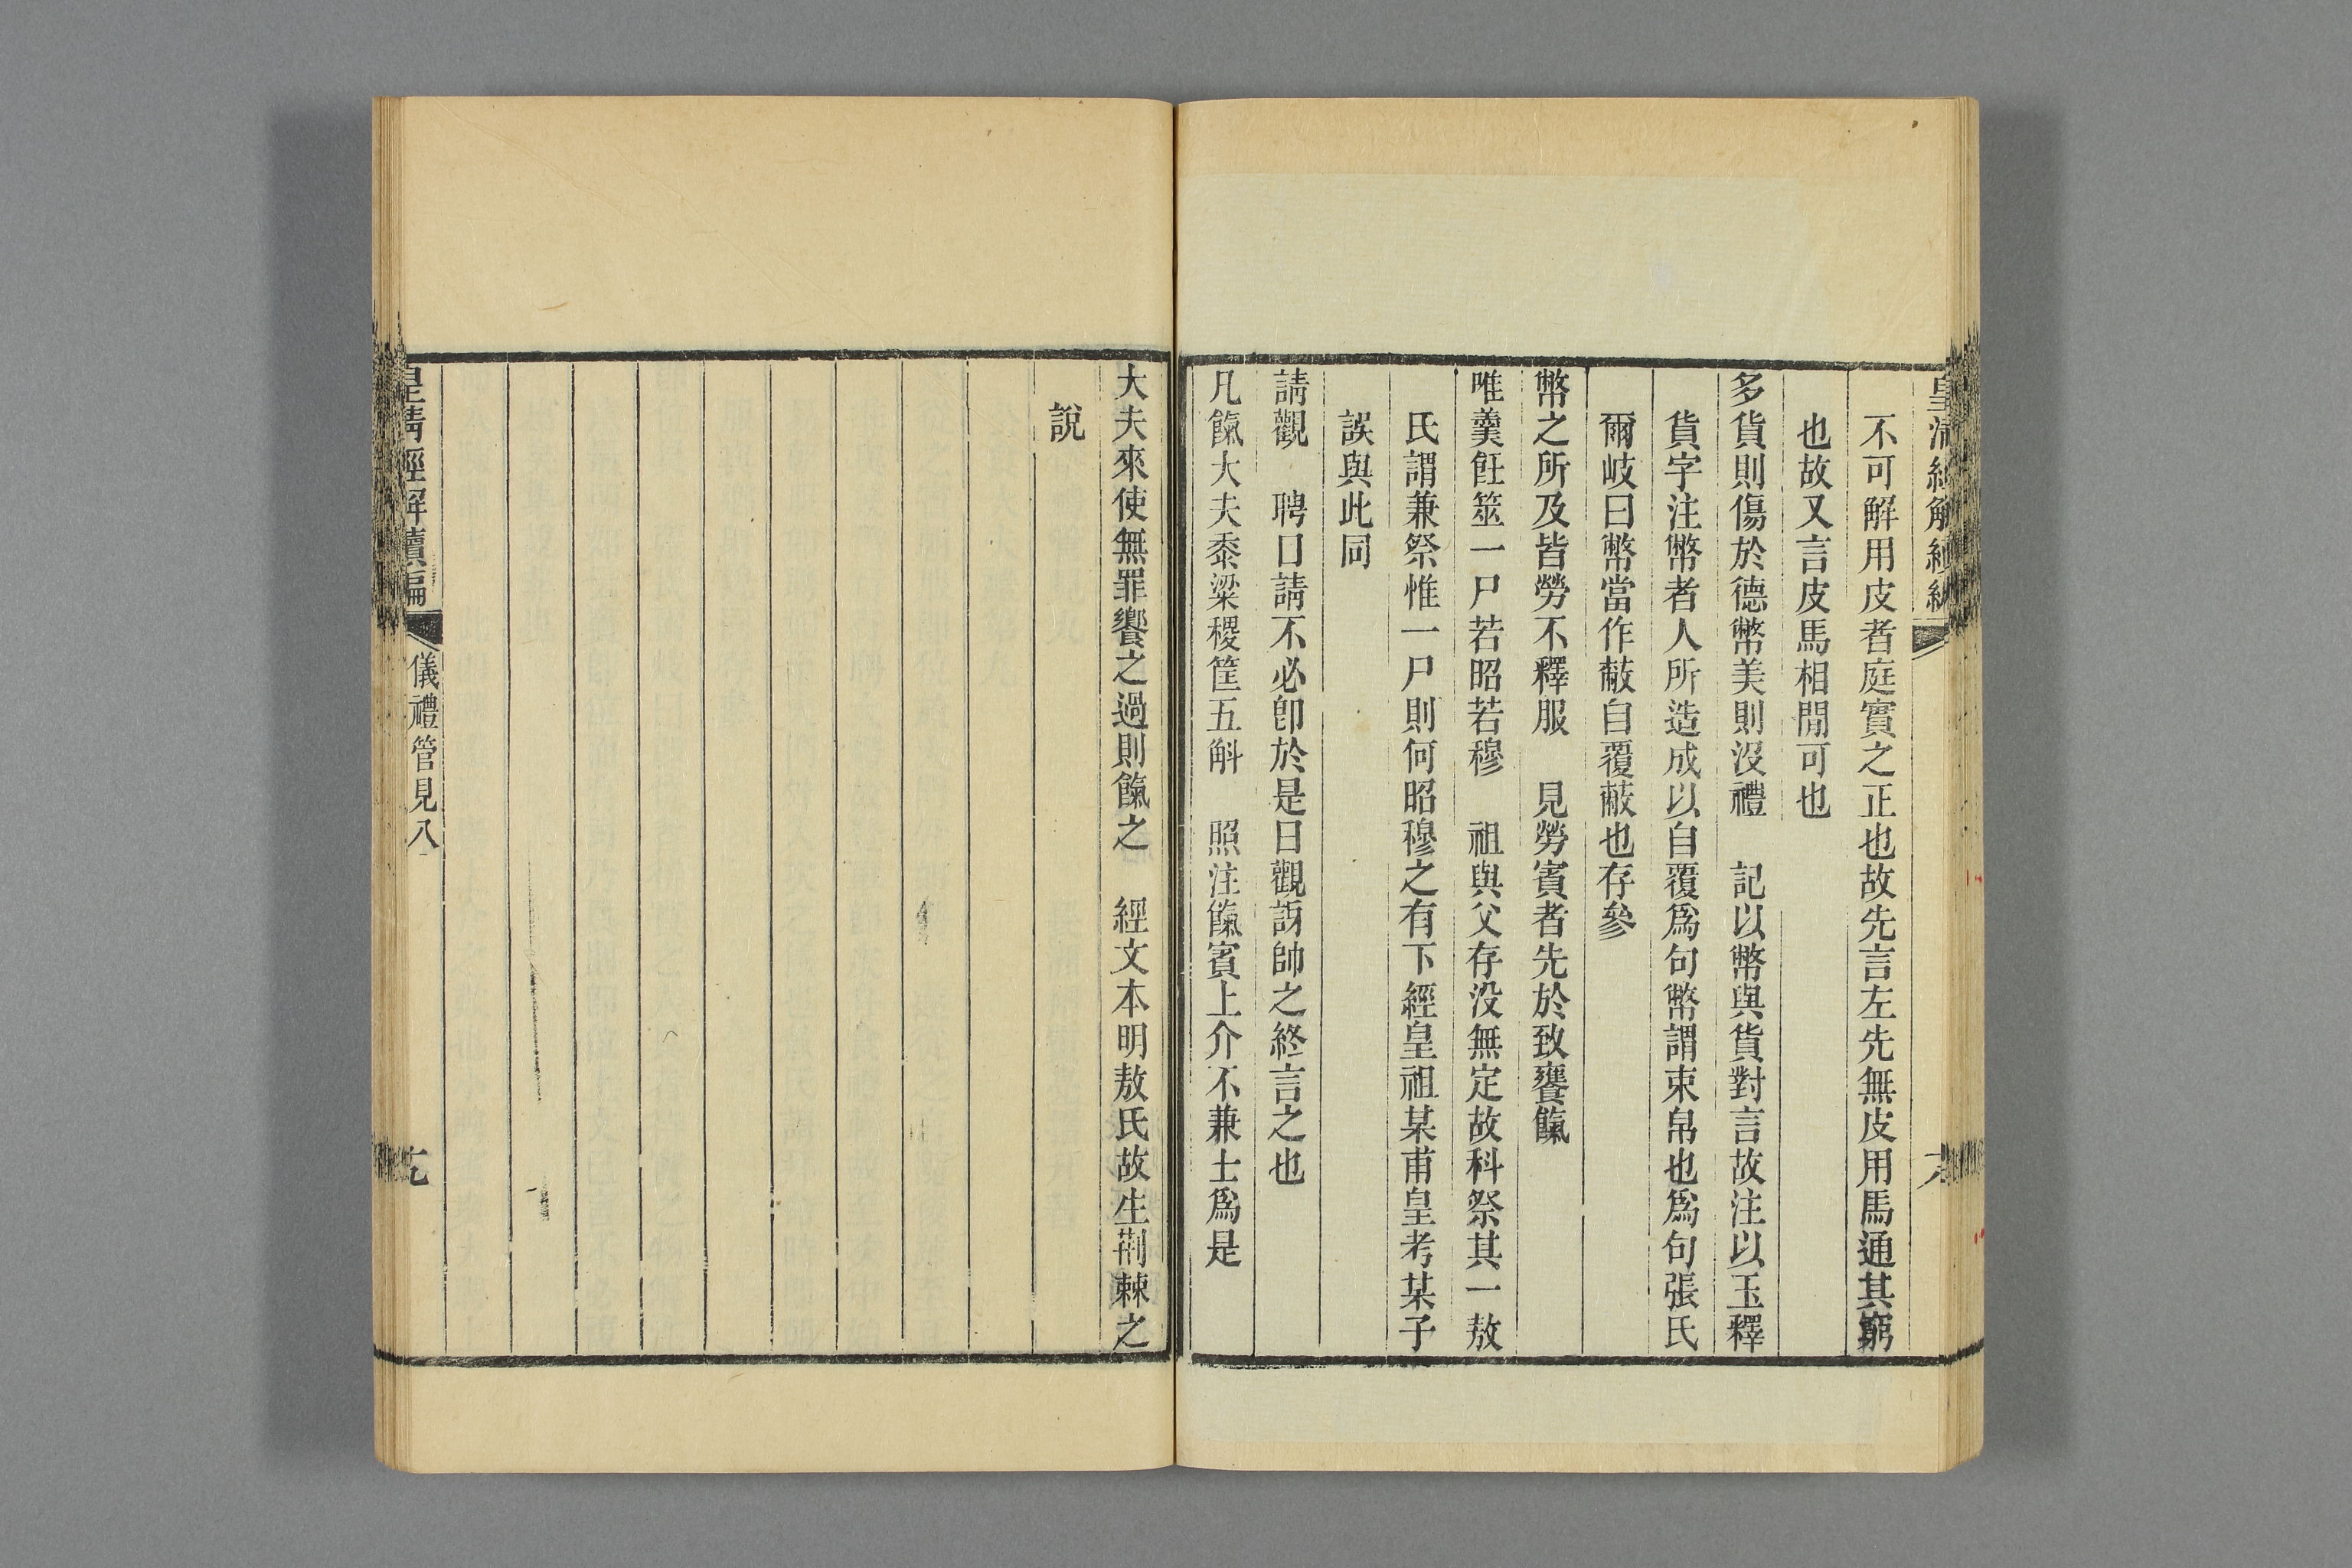 皇清經解續編
不可解用皮者庭實之正也故先言左先無皮用馬通其窮
也故又言皮馬相閒可也
多貨則傷於德幣美則沒禮　記以幣與貨對言故注以玉釋
貨字注幣者人所造成以自覆爲句幣謂束帛也爲句張氏
爾岐曰幣當作蔽自覆蔽也存參
幣之所及皆勞不釋服　見勞賓者先於致饔餼
唯羹飪筮一尸若昭若穆　祖與父存没無定故科祭其一敖
氏謂兼祭惟一尸則何昭穆之有下經皇祖某甫皇考某子
誤與此同
請觀　聘日請不必卽於是日觀訝帥之終言之也
凡餼大夫黍粱稷筐五斛　照注餼賓上介不兼士爲是
大夫來使無罪饗之過則餼之　經文本明敖氏故生荆棘之
說
皇清經解續編
儀禮管見八